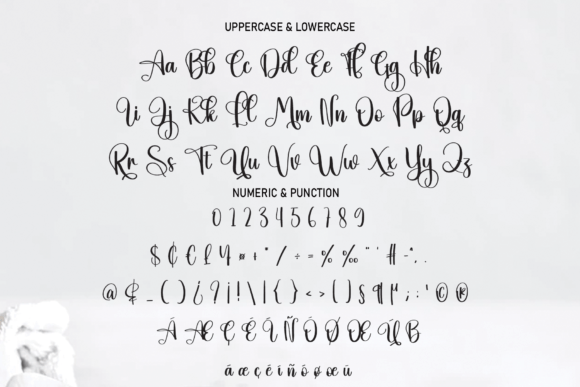 UPPERCASE & LOWERCASE
Aa Bb Cc Dd Ee Ff Gg Hh
Ii Jj Kk Ll Mm Nn Oo Pp Qq
Rr Ss Tt Uu Vv Ww Xx Yy Zz
NUMERIC & PUNCTION
0 1 2 3 4 5 6 7 8 9
$ ₵ € £ ¥ ¤ + * / ÷ = % ‰ " ' # ~ ^ . ,
@ & _ ( ) ¿ ? ¡ ! \ | { } < > [ ] § ¶ µ ; : ' © ®
Á Æ Ç É Í Ñ Ó Ø Œ Ú ß
á æ ç é í ñ ó ø œ ú